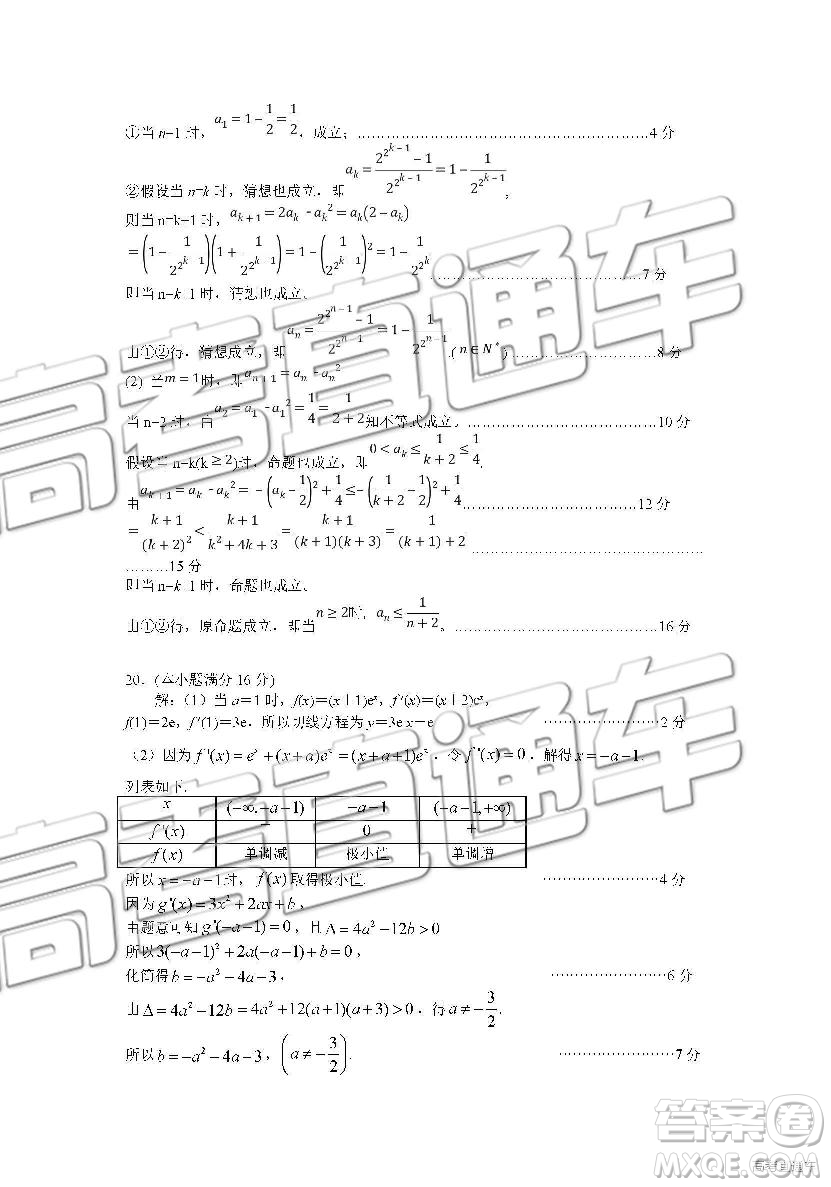 ①当 n=1 时，a₁=1-1/2=1/2，成立；……………………4 分
②假设当 n=k 时，猜想也成立．即 a_k=(2^(2^(k-1))-1)/2^(2^(k-1))=1-1/2^(2^(k-1))，
则当 n=k+1 时，a_(k+1)=2a_k-a_k²=a_k(2-a_k)
=(1-1/2^(2^(k-1)))(1+1/2^(2^(k-1)))=1-(1/2^(2^(k-1)))²=1-1/2^(2^k)……………………7 分
则当 n=k+1 时，猜想也成立．
由①②得．猜想成立，即 a_n=(2^(2^(n-1))-1)/2^(2^(n-1))=1-1/2^(2^(n-1)).(n∈N*)……………………8 分
(2) 当m=1时，即a_(n+1)=a_n-a_n²
当 n=2 时，由a₂=a₁-a₁²=1/4=1/(2+2)知不等式成立。……………………10 分
假设当 n=k(k≥2)时，命题也成立，即0<a_k≤1/(k+2)≤1/4.
由a_(k+1)=a_k-a_k²=-(a_k-1/2)²+1/4≤-(1/(k+2)-1/2)²+1/4……………………12 分
=(k+1)/(k+2)²<(k+1)/(k²+4k+3)=(k+1)/((k+1)(k+3))=1/((k+1)+2)……………………
………15 分
则当 n=k+1 时，命题也成立．
由①②得，原命题成立．即当n≥2时，a_n≤1/(n+2)。……………………16 分
20．(本小题满分 16 分)
解：（1）当 a＝1 时，f(x)＝(x＋1)eˣ，f′(x)＝(x＋2)eˣ，
f(1)＝2e，f′(1)＝3e．所以切线方程为 y＝3e x－e ……………………2 分
（2）因为f'(x)=eˣ+(x+a)eˣ=(x+a+1)eˣ．令f'(x)=0．解得x=-a-1.
列表如下.
x (-∞,-a-1) -a-1 (-a-1,+∞)
f'(x) - 0 +
f(x) 单调减 极小值 单调增
所以x=-a-1时，f(x)取得极小值. ……………………4 分
因为g'(x)=3x²+2ax+b，
由题意可知g'(-a-1)=0，且Δ=4a²-12b>0
所以3(-a-1)²+2a(-a-1)+b=0，
化简得b=-a²-4a-3， ……………………6 分
由Δ=4a²-12b=4a²+12(a+1)(a+3)>0．得a≠-3/2.
所以b=-a²-4a-3，(a≠-3/2). ……………………7 分
高考直通车
答案卷
MXQE.COM
高考直通车